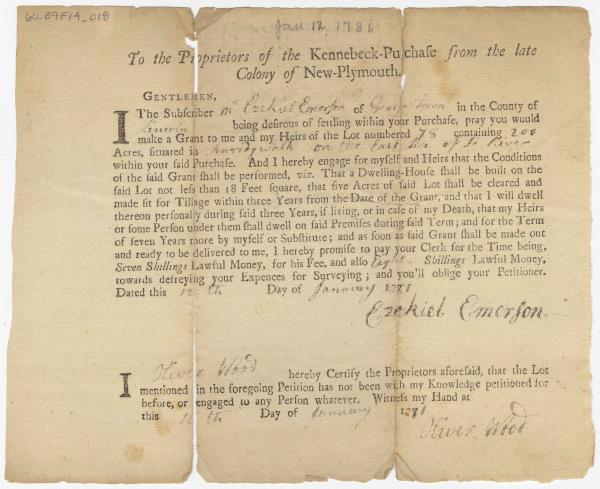 60.89F14_018
Jan. 12, 1781
To the Proprietors of the Kennebeck-Purchase from the late
Colony of New-Plymouth.
GENTLEMEN,
I The Subscriber Ezekiel Emerson of George Town in the County of
Lincoln being desirous of settling within your Purchase, pray you would
make a Grant to me and my Heirs of the Lot numbered 78 containing 200
Acres, situated in Norridgwalk on the East side of River
within your said Purchase. And I hereby engage for myself and Heirs that the Conditions
of the said Grant shall be performed, viz. That a Dwelling-House shall be built on the
said Lot not less than 18 Feet square, that five Acres of said Lot shall be cleared and
made fit for Tillage within three Years from the Date of the Grant, and that I will dwell
thereon personally during said three Years, if living, or in case of my Death, that my Heirs
or some Person under them shall dwell on said Premises during said Term; and for the Term
of seven Years more by myself or Substitute; and as soon as said Grant shall be made out
and ready to be delivered to me, I hereby promise to pay your Clerk for the Time being,
Seven Shillings Lawful Money, for his Fee, and also Eight Shillings Lawful Money,
towards defreying your Expences for Surveying; and you'll oblige your Petitioner.
Dated this 12th Day of January 1781
Ezekiel Emerson.
I Oliver Wood hereby Certify the Proprietors aforesaid, that the Lot
mentioned in the foregoing Petition has not been with my Knowledge petitioned for
before, or engaged to any Person whatever. Witness my Hand at
this 12th Day of January 1781
Oliver Wood